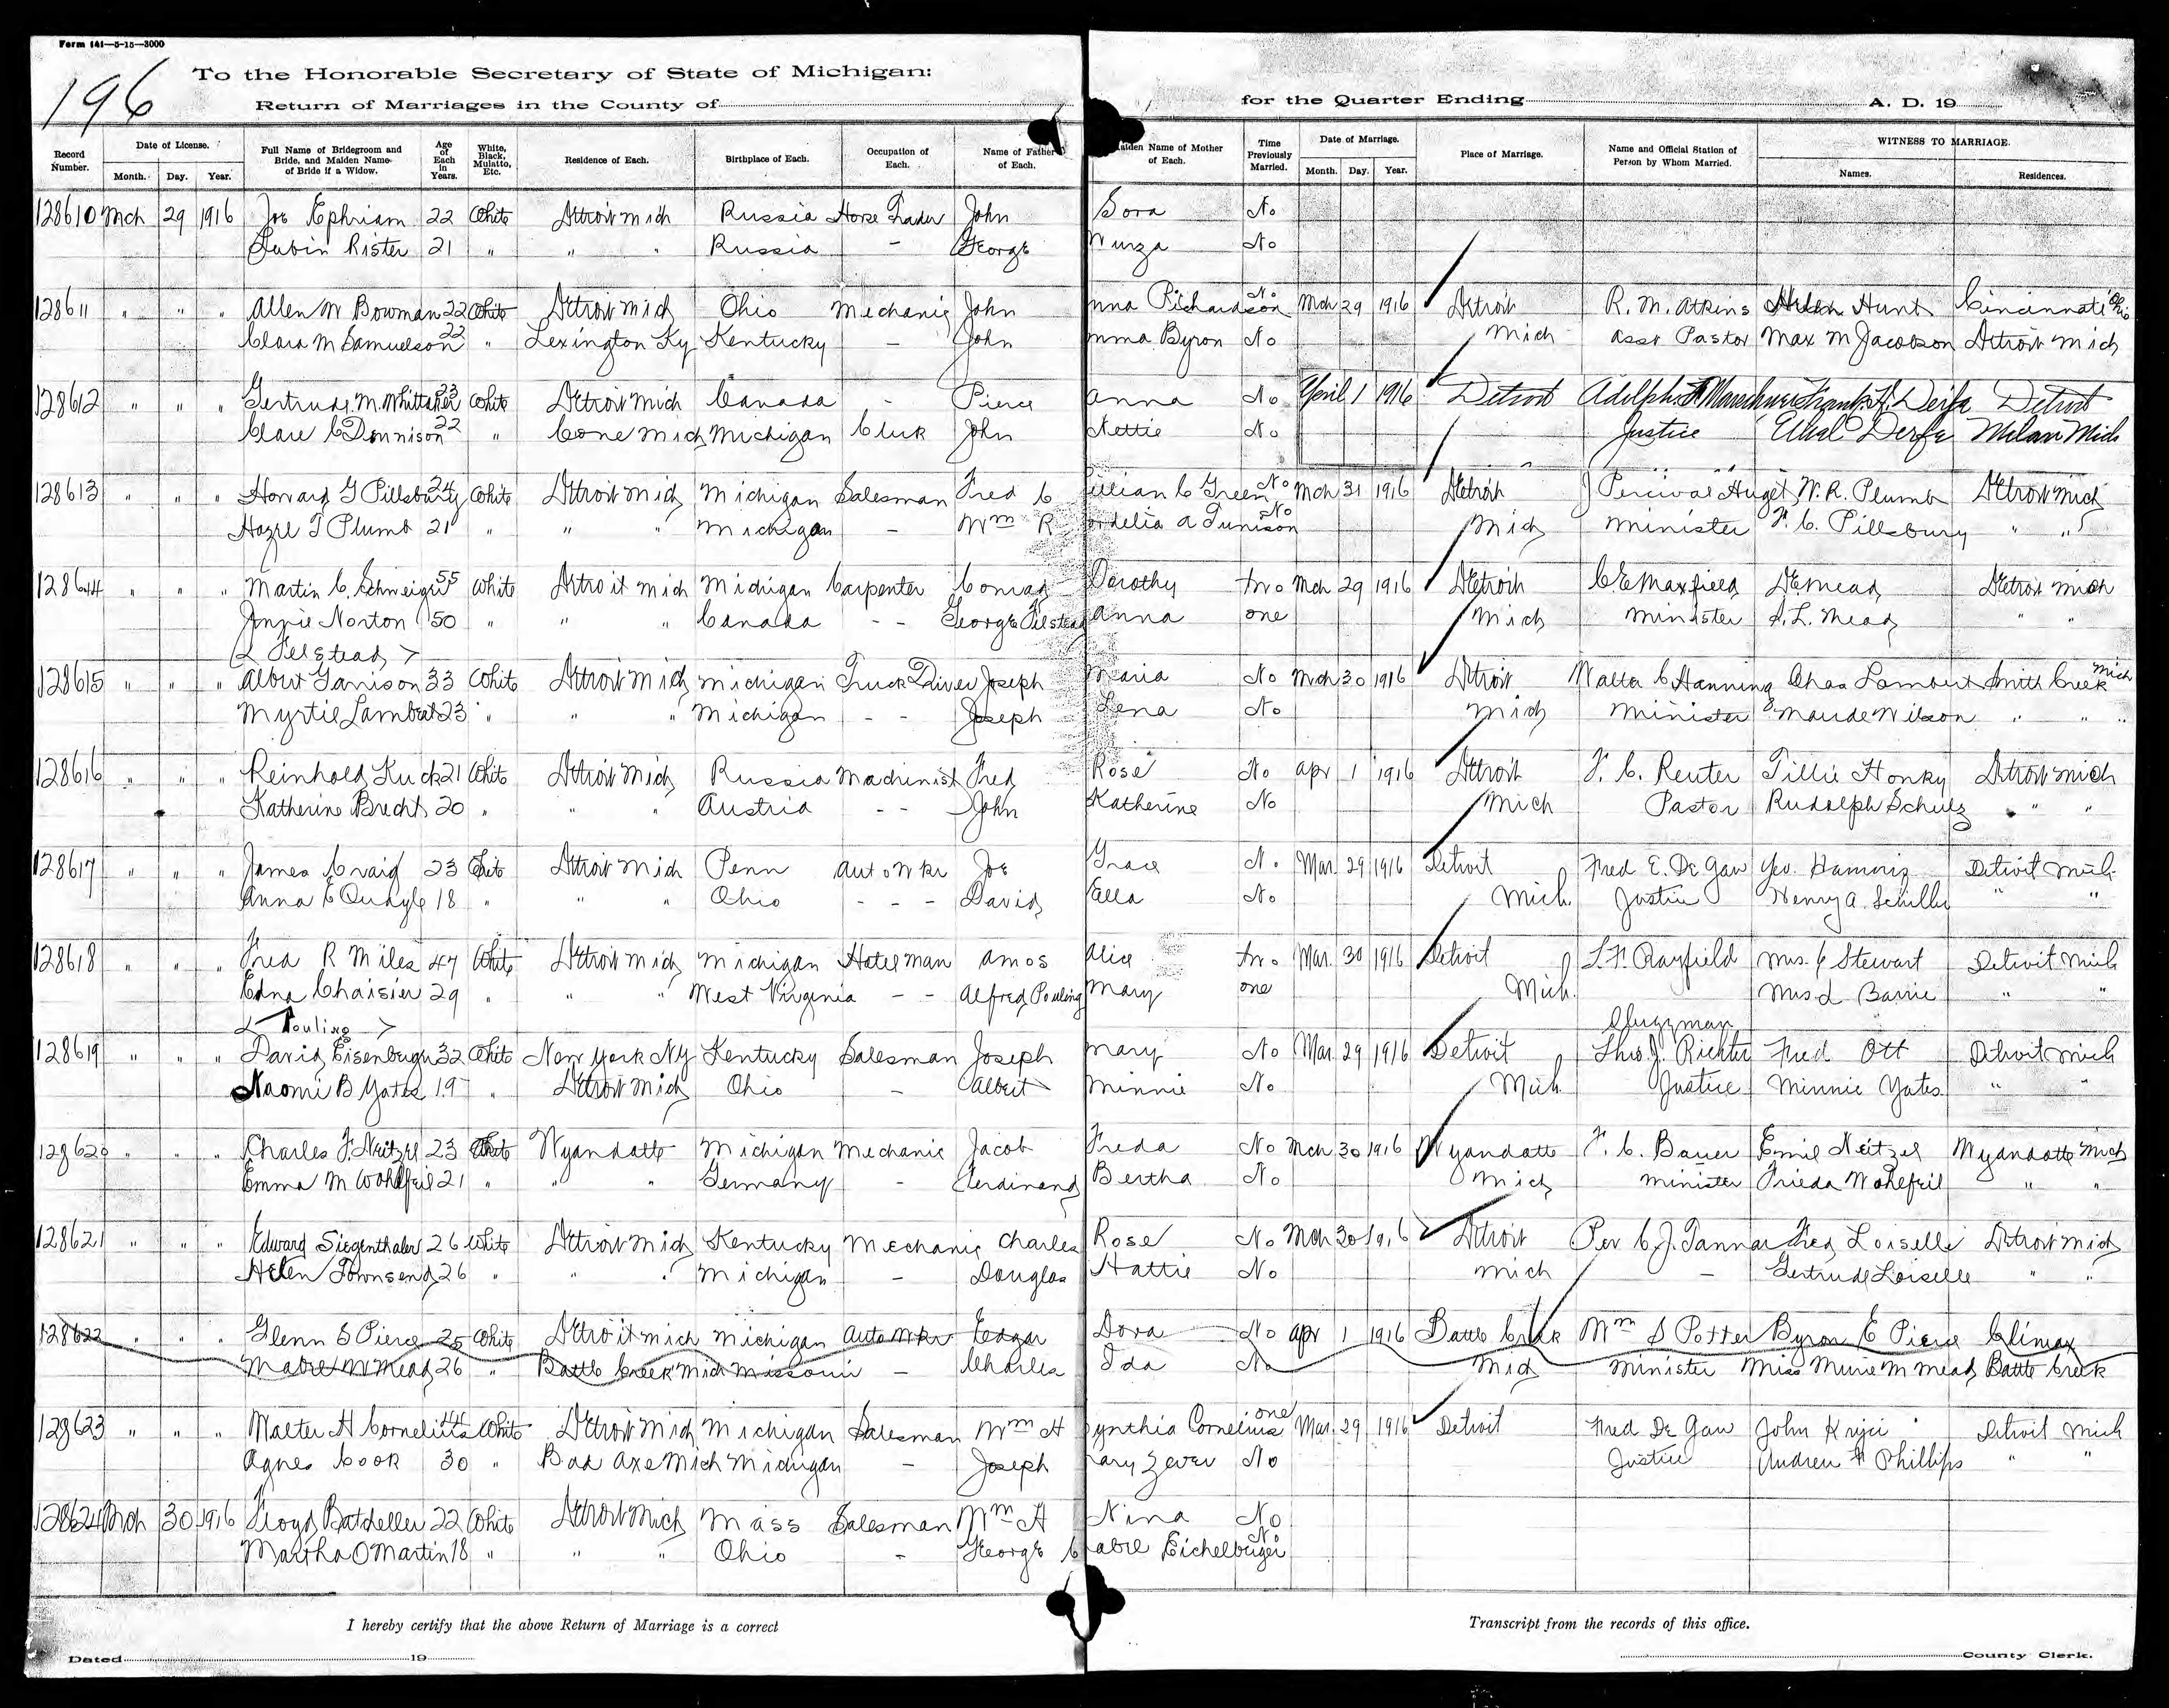 Form 141—5-15—3000
196
To the Honorable Secretary of State of Michigan:
Return of Marriages in the County of for the Quarter Ending A. D. 19
Record Number. Date of License. Month. Day. Year. Full Name of Bridegroom and Bride, and Maiden Name of Bride if a Widow. Age of Each in Years. White, Black, Mulatto, Etc. Residence of Each. Birthplace of Each. Occupation of Each. Name of Father of Each. Maiden Name of Mother of Each. Time Previously Married. Date of Marriage. Month. Day. Year. Place of Marriage. Name and Official Station of Person by Whom Married. WITNESS TO MARRIAGE. Names. Residences.
128610 Mch 29 1916 Joe Ephriam 22 White Detroit Mich Russia Horse Trader John Sora No
Lubin Rister 21 " " " Russia - George Wurza No
128611 " " " Allen W Bowman 22 White Detroit Mich Ohio Mechanic John nna Richardson No Mch 29 1916 Detroit R. M. Atkins Helen Hunt Cincinnati Ohio
Clara M Samuelson 22 " Lexington Ky Kentucky - John mma Byron No Mich Asst Pastor Max M Jacobson Detroit Mich
128612 " " " Gertrude M. Whittaker 23 White Detroit Mich Canada - Pierce Anna No April 1 1916 Detroit Adolph Frank A. Derfe Detroit
Clare C Dennison 22 " Cone Mich Michigan Clerk John Nettie No Justice Ethel Derfe Milan Mich
128613 " " " Howard G Pillsbury 24 White Detroit Mich Michigan Salesman Fred C Lillian C Green No Mch 31 1916 Detroit J Percival Huget W. R. Plumb Detroit Mich
Hazel T Plumb 21 " " " Michigan - Wm R ordelia A Tunison No Mich Minister F. C. Pillsbury " "
128614 " " " Martin C. Schweigert 55 White Detroit Mich Michigan Carpenter Conrad Dorothy two Mch 29 1916 Detroit C E Maxfield D E Mead Detroit Mich
Jennie Norton 50 " " " Canada - - George Pelstead Anna one Mich Minister A. L. Mead " "
< Pelstead >
128615 " " " Albert Garrison 33 White Detroit Mich Michigan Truck Driver Joseph Maria No Mch 30 1916 Detroit Walter C Hanning Chas Lambert Smiths Creek Mich
Myrtie Lambert 23 " " " Michigan - - Joseph Lena No Mich Minister Maude Wilson " " "
128616 " " " Reinhold Kuck 21 White Detroit Mich Russia Machinist Fred Rose No Apr 1 1916 Detroit F. C. Reuter Tillie Honky Detroit Mich
Katherine Brecht 20 " " " Austria - - John Katherine No Mich Pastor Rudolph Schulz " "
128617 " " " James Craig 23 White Detroit Mich Penn Auto Wkr Joe Grace No Mar. 29 1916 Detroit Fred E. De Gaw Geo. Detroit Mich
Anna E Quayle 18 " " " Ohio - - - David Ella No Mich. Justice Henry A. Schiller " "
128618 " " " Fred R Miles 47 White Detroit Mich Michigan Hotel man Amos Alice two Mar. 30 1916 Detroit S. F. Rayfield Mrs. C Stewart Detroit Mich
Edna Chaisier 29 " " " West Virginia - - Alfred Pouling Mary one Mich. Mrs L Barrie " "
< Pouling > Clergyman
128619 " " " David Eisenburgh 32 White New York NY Kentucky Salesman Joseph Mary No Mar. 29 1916 Detroit Theo. J. Richter Fred Ott Detroit Mich
Naomi B Yates 19 " Detroit Mich Ohio - Albert Minnie No Mich Justice Minnie Yates " "
128620 " " " Charles F. Neitzel 23 White Wyandotte Michigan Mechanic Jacob Freda No Mch 30 1916 Wyandotte F. C. Bauer Emil Neitzel Wyandotte Mich
Emma M Wohlfeil 21 " " " Germany - Ferdinand Bertha No Mich Minister Frieda Wohlfeil " "
128621 " " " Edward Siegenthaler 26 White Detroit Mich Kentucky Mechanic Charles Rose No Mch 30 1916 Detroit Rev C. J. Tannar Fred Loiselle Detroit Mich
Helen Townsend 26 " " " Michigan - Douglas Hattie No Mich - Gertrude Loiselle " "
128622 " " " Glenn S Pierce 25 White Detroit Mich Michigan Auto Wkr Edgar Dora No Apr 1 1916 Battle Creek Wm S Potter Byron E Pierce Climax
Mabel M Mead 26 " Battle Creek Mich Missouri - Charles Ida No Mich Minister Miss Murie M Mead Battle Creek
128623 " " " Walter H Cornelius 44 White Detroit Mich Michigan Salesman Wm H ynthia Cornelius one Mar. 29 1916 Detroit Fred De Gaw John Krjci Detroit Mich
Agnes Cook 30 " Bad Axe Mich Michigan - Joseph ary Zever No Justice Andrew H Phillips " "
128624 Mch 30 1916 Floyd Batdeller 22 White Detroit Mich Mass Salesman Wm H Nina No
Martha O Martin 18 " " " Ohio - George C abel Eichelberger No
I hereby certify that the above Return of Marriage is a correct Transcript from the records of this office.
Dated 19 County Clerk.